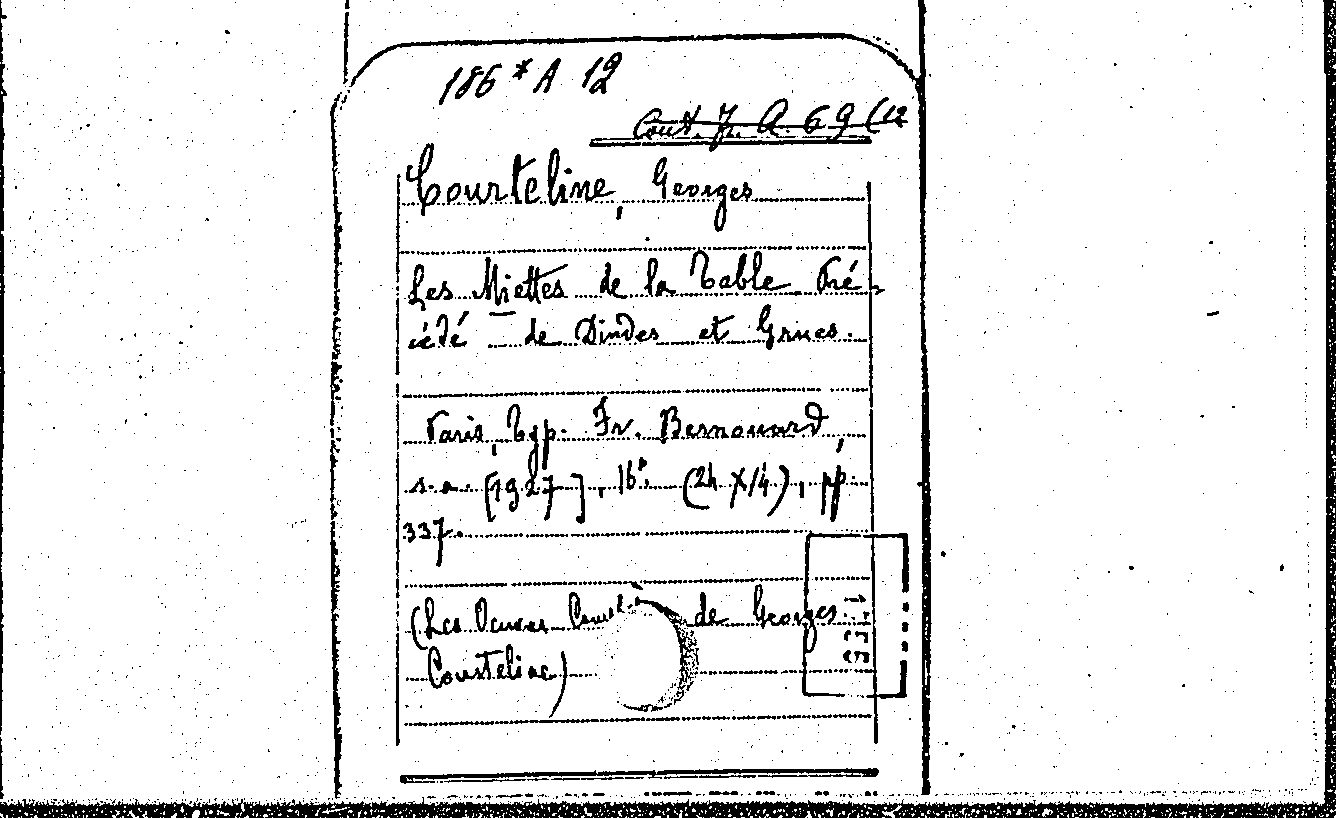 186 * A 12
Court. Fr. A 69 (12
Courteline, Georges
Les Miettes de la Table Pré-
cédé de Dindes et Grues.
Paris, Typ. Fr. Bernouard,
s.a. [1927], 16º. (24 x 14), pp.
337.
(Les Oeuvres de Georges
Courteline)